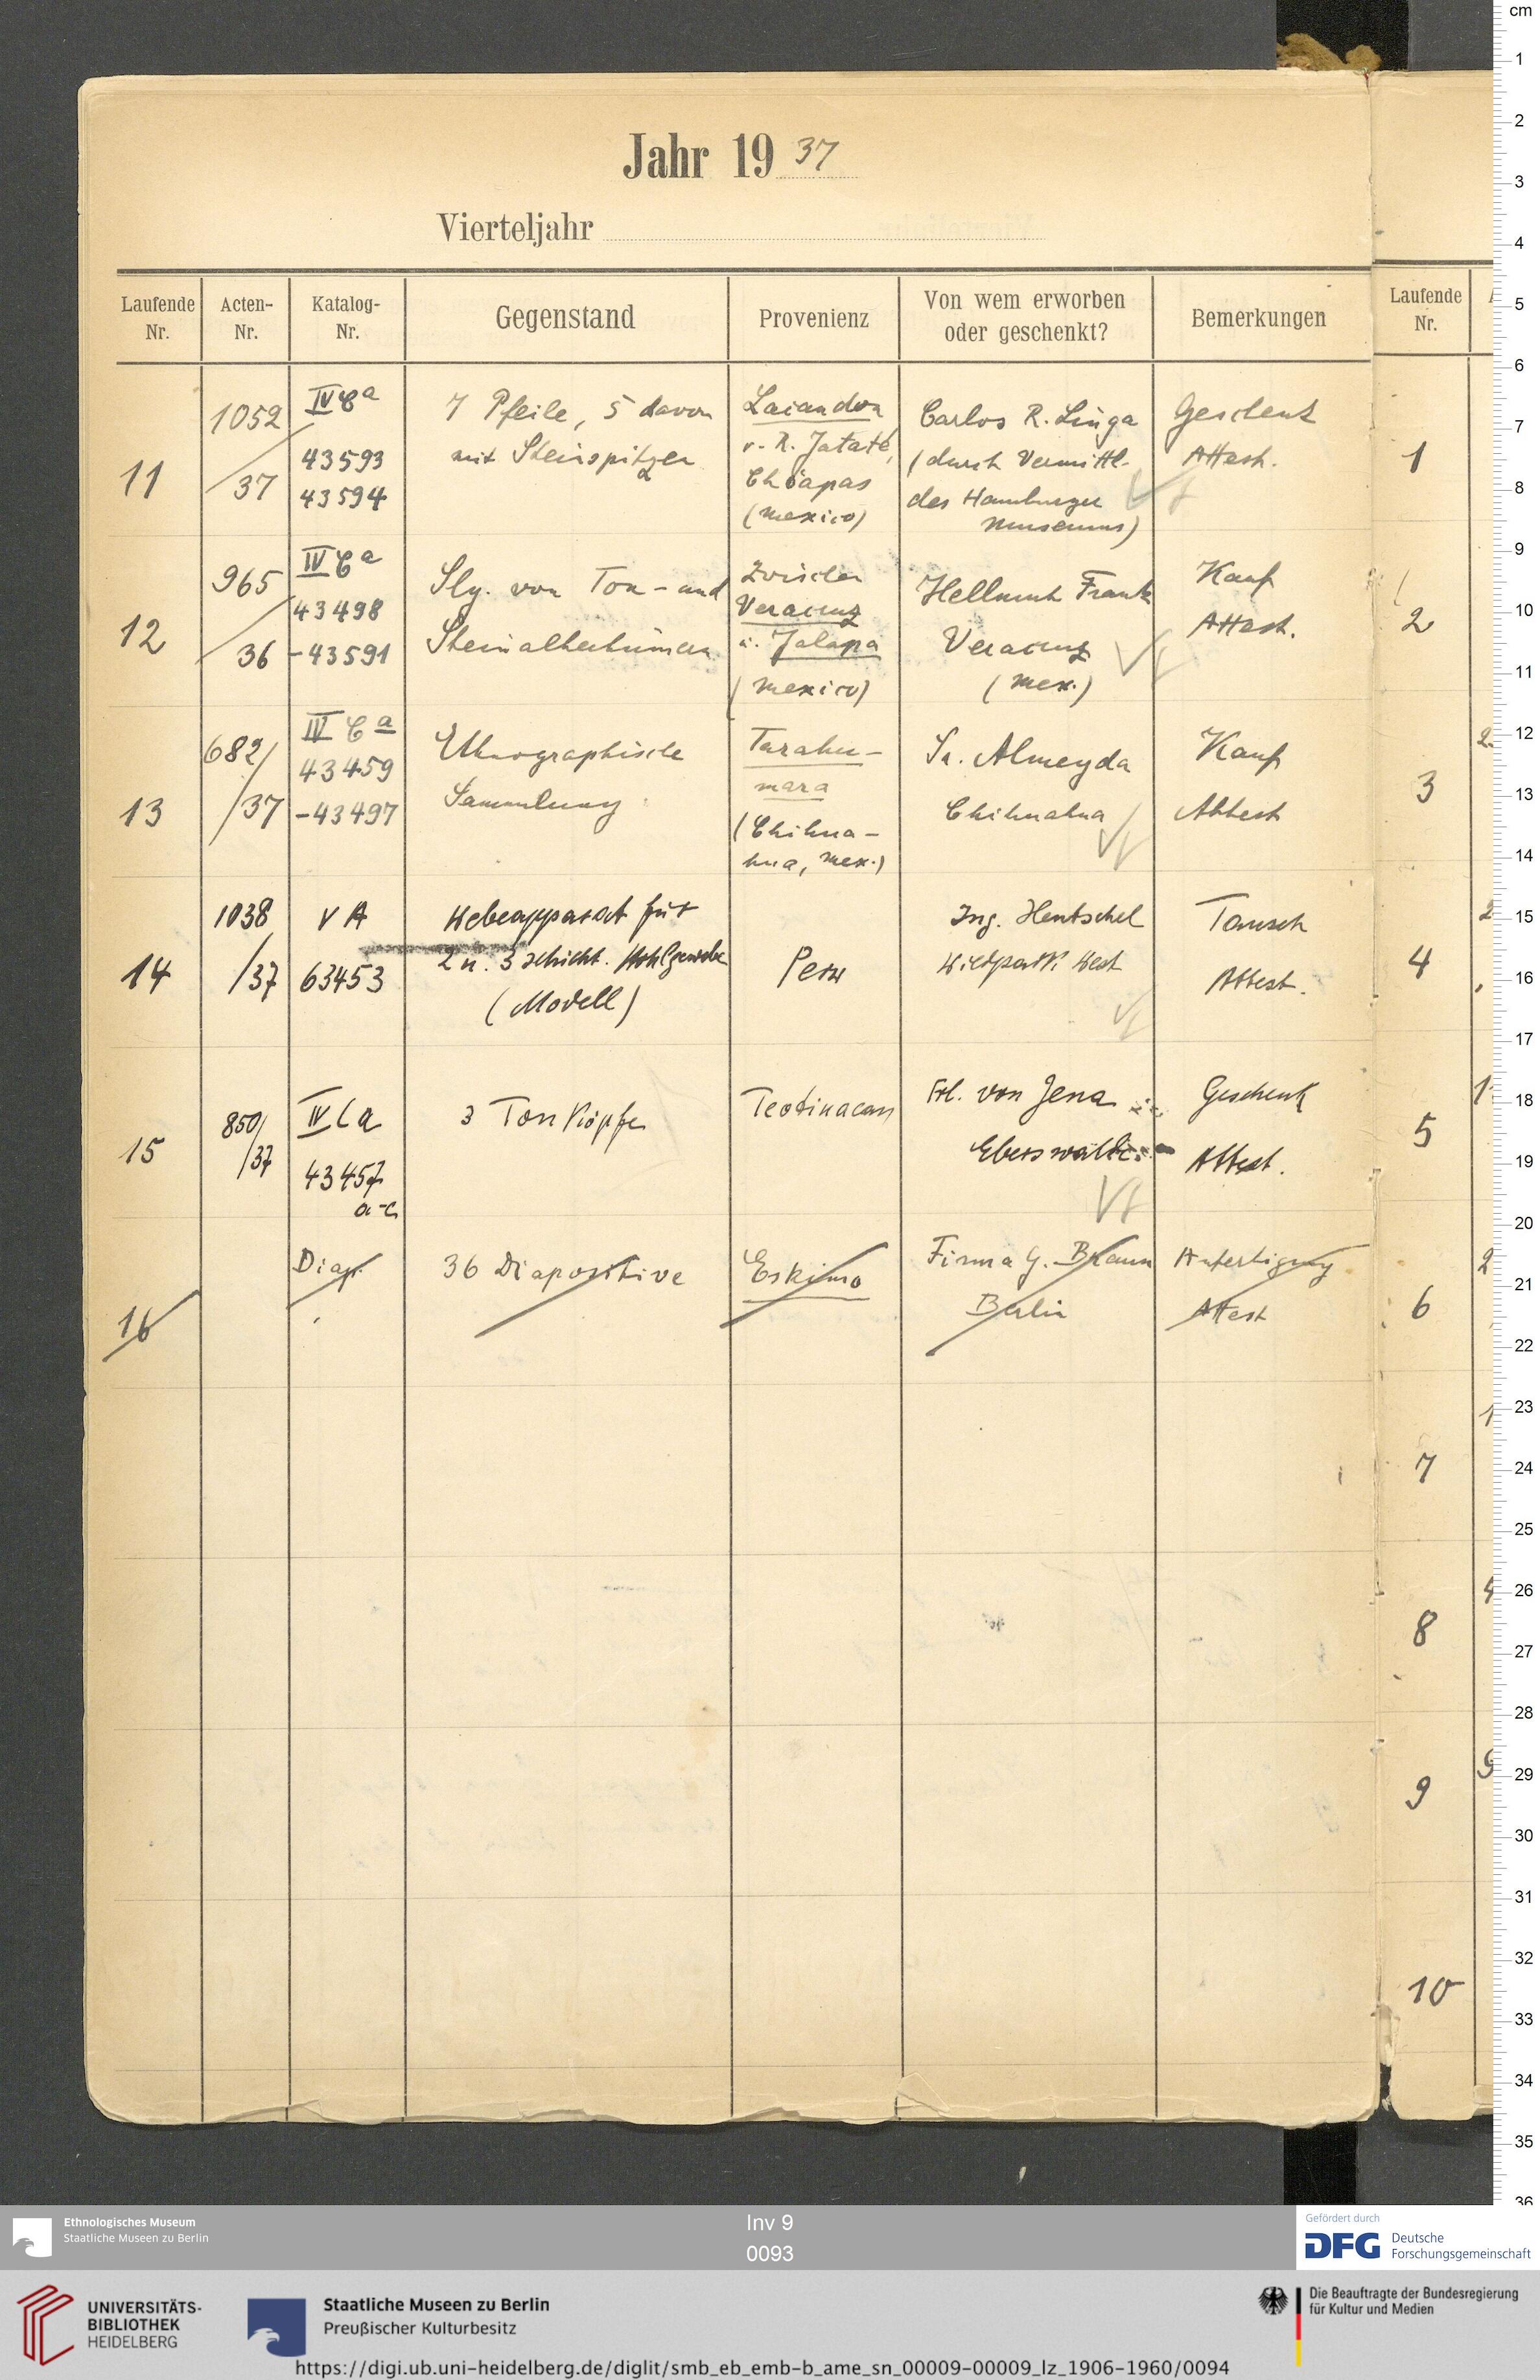 Jahr 1937
Vierteljahr
Laufende Nr.
Acten-Nr.
Katalog-Nr.
Gegenstand
Provenienz
Von wem erworben oder geschenkt?
Bemerkungen
11
1052/37
IV Ca
43593
43594
7 Pfeile, 5 davon
mit Steinspitzen
Lacandon
v. R. Jataté,
Chiapas
(Mexico)
Carlos R. Linga
(durch Vermittl.
des Hamburger
Museums)
Geschenk
Attest.
12
965/36
IV Ca
43498
-43591
Slg. von Ton- und
Steinaltertümern
Zwischen
Veracruz
u. Jalapa
(Mexico)
Hellmuth Frank
Veracruz
(Mex.)
Kauf
Attest.
13
682/37
IV Ca
43459
-43497
Ethnographische
Sammlung
Tarahu-
mara
(Chihua-
hua, Mex.)
Sr. Almeyda
Chihuahua
Kauf
Attest
14
1038/37
V A
63453
Webeapparat für
2 u. 3 schicht. Hohlgewebe
(Modell)
Peru
Ing. Hentschel
Wildpark West
Tausch
Attest.
15
850/37
IV Ca
43457
a-c
3 Tonköpfe
Teotihuacan
Frl. von Jena
Eberswalde
Geschenk
Attest.
16
Diap.
36 Diapositive
Eskimo
Firma G. Braun
Berlin
Anfertigung
Attest
Laufende Nr.
1
2
3
4
5
6
7
8
9
10
cm
1
2
3
4
5
6
7
8
9
10
11
12
13
14
15
16
17
18
19
20
21
22
23
24
25
26
27
28
29
30
31
32
33
34
35
36
Ethnologisches Museum
Staatliche Museen zu Berlin
Inv 9
0093
Gefördert durch
DFG Deutsche
Forschungsgemeinschaft
UNIVERSITÄTS-
BIBLIOTHEK
HEIDELBERG
Staatliche Museen zu Berlin
Preußischer Kulturbesitz
Die Beauftragte der Bundesregierung
für Kultur und Medien
https://digi.ub.uni-heidelberg.de/diglit/smb_eb_emb-b_ame_sn_00009-00009_lz_1906-1960/0094